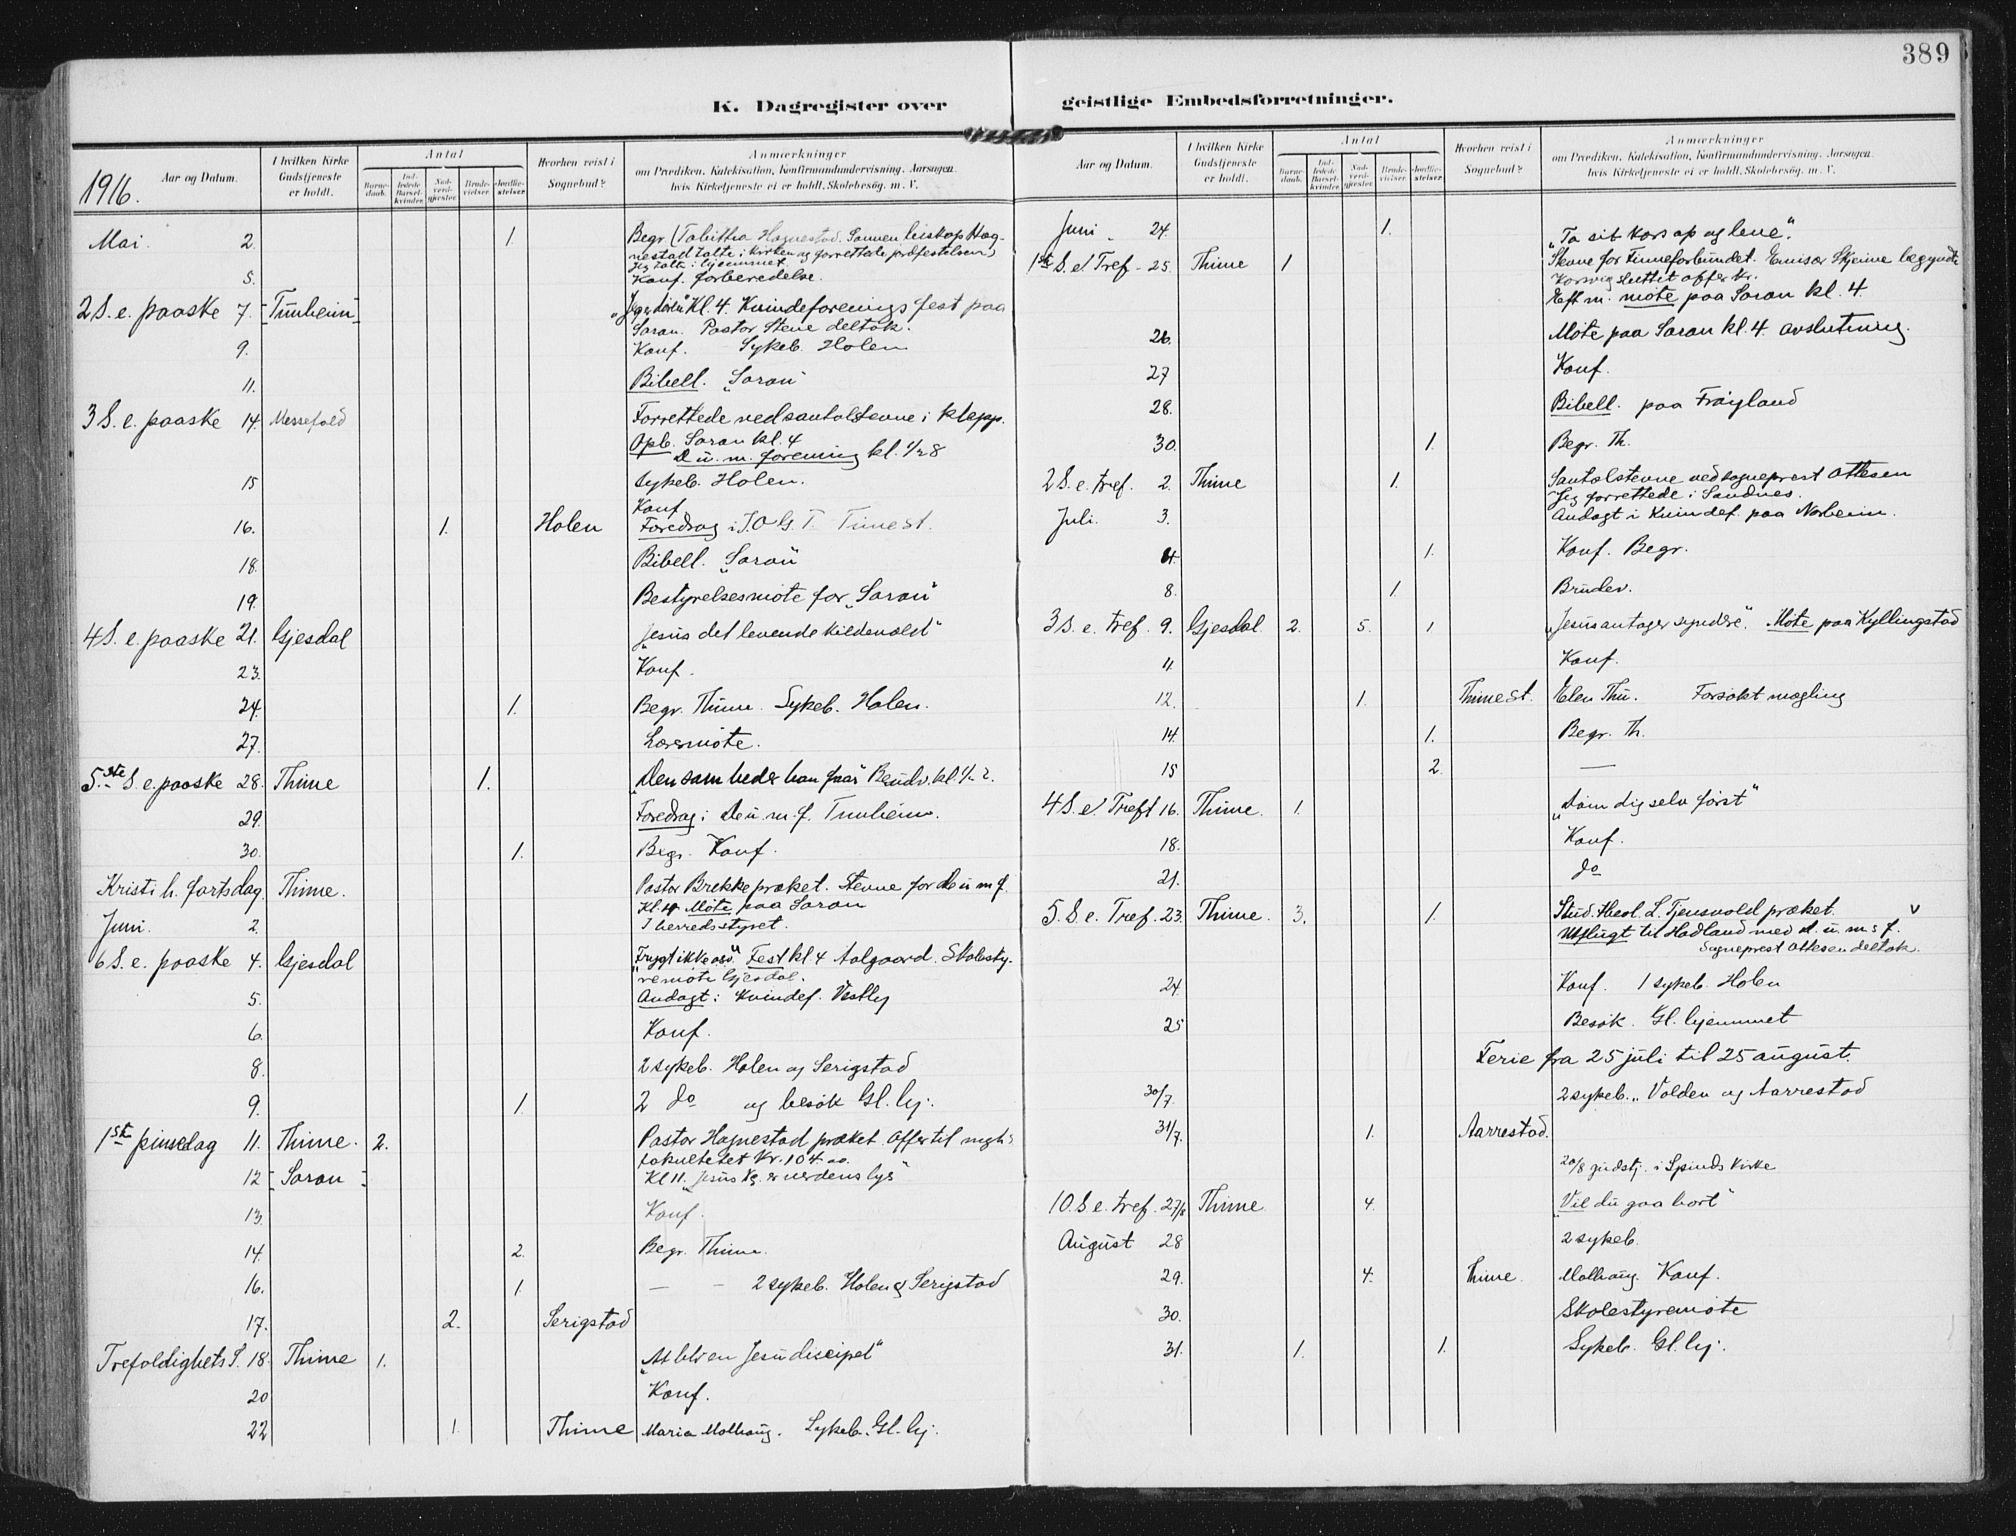 389
K. Dagregister over geistlige Embedsforretninger.
Aar og Datum.
I hvilken Kirke Gudstjeneste er holdt.
Antal
Barnedaab.
Indledede Barselkvinder.
Nadverdgjæster.
Brudevielser.
Jordfæstelser.
Hvorhen reist i Sognebud?
Anmærkninger
om Prædiken, Katekisation, Konfirmandundervisning, Aarsagen, hvis Kirketjeneste ei er holdt, Skolebesøg. m. V.
1916.
Mai. 2. 1. Begr (Tabitha Hognestad. Sønnen biskop Hog-
nestad talte i kirken og forrettede jordfestelsen)
Jeg talte i hjemmet.
5. Konf. forberedelse.
2 S. e. paaske 7. [Tunheim] "Jeg er døren" Kl. 4. Kvindeforenings fest paa
Saron. Pastor Stene deltok.
9. Konf. Sykeb. Holen
11. Bibell. "Saron"
3 S. e. paaske 14. Messefald Forrettede ved santalstevne i Klepp.
Opb. Saron kl. 4
D. u. m. forening kl. 1/2 8
15 Sykeb. Holen.
Konf.
16. 1. Holen Foredrag i I.O.G.T. Time st.
18. Bibell. "Saron"
19. Bestyrelsesmøte for "Saron"
4 S. e. paaske 21. Gjesdal "Jesus det levende kildevæld"
23. Konf.
24. 1. Begr. Thime. Sykeb. Holen.
27. Lærermøte.
5.te S. e. paaske 28. Thime 1. "Den som beder han faar" Brudv. kl. 1/2 2.
29. Foredrag i De u. m. f. Tunheim.
30. 1. Begr. Konf.
Kristi h. fartsdag. Thime. Pastor Brekke præket. Stevne for De u m f.
Kl. 4 Møte paa Saron
Juni. 2. I herredsstyret.
6 S. e. paaske 4. Gjesdal "Frygt ikke osv." Fest kl 4 Aalgaard. Skolesty-
remøte Gjesdal.
5. Andagt i kvindef. Vestly
6. Konf.
8. 2 sykeb. Holen og Serigstad
9. 1. 2 do og besøk Gl. hj.
1ste pinsedag 11. Thime. 2. Pastor Hognestad præket. Offer til megh:
fakultetet Kr. 104.00.
12 [Saron] Kl 11. "Jesus Kr. er verdens lys"
13. Konf.
14. 2. Begr. Thime.
16. 1. — - 2 sykeb. Holen og Serigstad
17. 2. Serigstad
Trefoldighets S. 18. Thime 1. "At bli en Jesu discipel"
20 Konf.
22 1. Thime Maria Molhaug. Sykeb. Gl. hj.
Aar og Datum.
I hvilken Kirke Gudstjeneste er holdt.
Antal
Barnedaab.
Indledede Barselkvinder.
Nadverdgjæster.
Brudevielser.
Jordfæstelser.
Hvorhen reist i Sognebud?
Anmærkninger
om Prædiken, Katekisation, Konfirmandundervisning, Aarsagen, hvis Kirketjeneste ei er holdt, Skolebesøg. m. V.
Juni 24. 1. "Ta sit kors op og leve".
1ste S. e. Tref - 25. Thime 1 Stevne for Finneforbundet. Emisær Skjeime begyndte
Korsvig sluttet offer kr.
Eft m. møte paa Saron kl. 4.
26. Møte paa Saron kl. 4 avslutning.
27 Konf.
28. Bibell. paa Frøyland
30. 1. Begr. Th.
2 S. e. tref. 2. Thime 1. Santalstevne ved sogneprest Ottesen
Jeg forrettede i Sandnes.
Juli. 3. Andagt i kvindef. paa Norheim.
4. 1. Konf. Begr.
8. 1 Brudev.
3 S. e. tref. 9. Gjesdal. 2. 5. 1 "Jesus antager syndere". Møte paa Kyllingstad
11. Konf.
12. 1. Thime st. Elen Thu. Forsøkt mægling
14. 1. Begr. Th.
15 2. —
4 S. e. Treft 16. Thime. 1. "Døm dig selv først"
18. Konf.
21. do
5. S e. Tref. 23. Thime. 3. 1. Stud. theol. L. Tjensvold præket. v
Utflugt til Hadland med d. u. m s f.
Sogneprest Ottesen deltok.
24. Konf. 1 sykeb. Holen
25 Besøk. Gl. hjemmet
Ferie fra 25 juli til 25 august.
30/7. 2 sykeb. Volden og Aarrestad
31/7. 1. Aarrestad.
20/8 gudstj. i Spinds kirke
10. S e. tref. 27/8 Thime. 4. "Vil du gaa bort"
August 28 2 sykeb.
29. 4. Thime. Molhaug. Konf.
30. Skolestyremøte
31. 1. 1. Sykeb. Gl. hj.